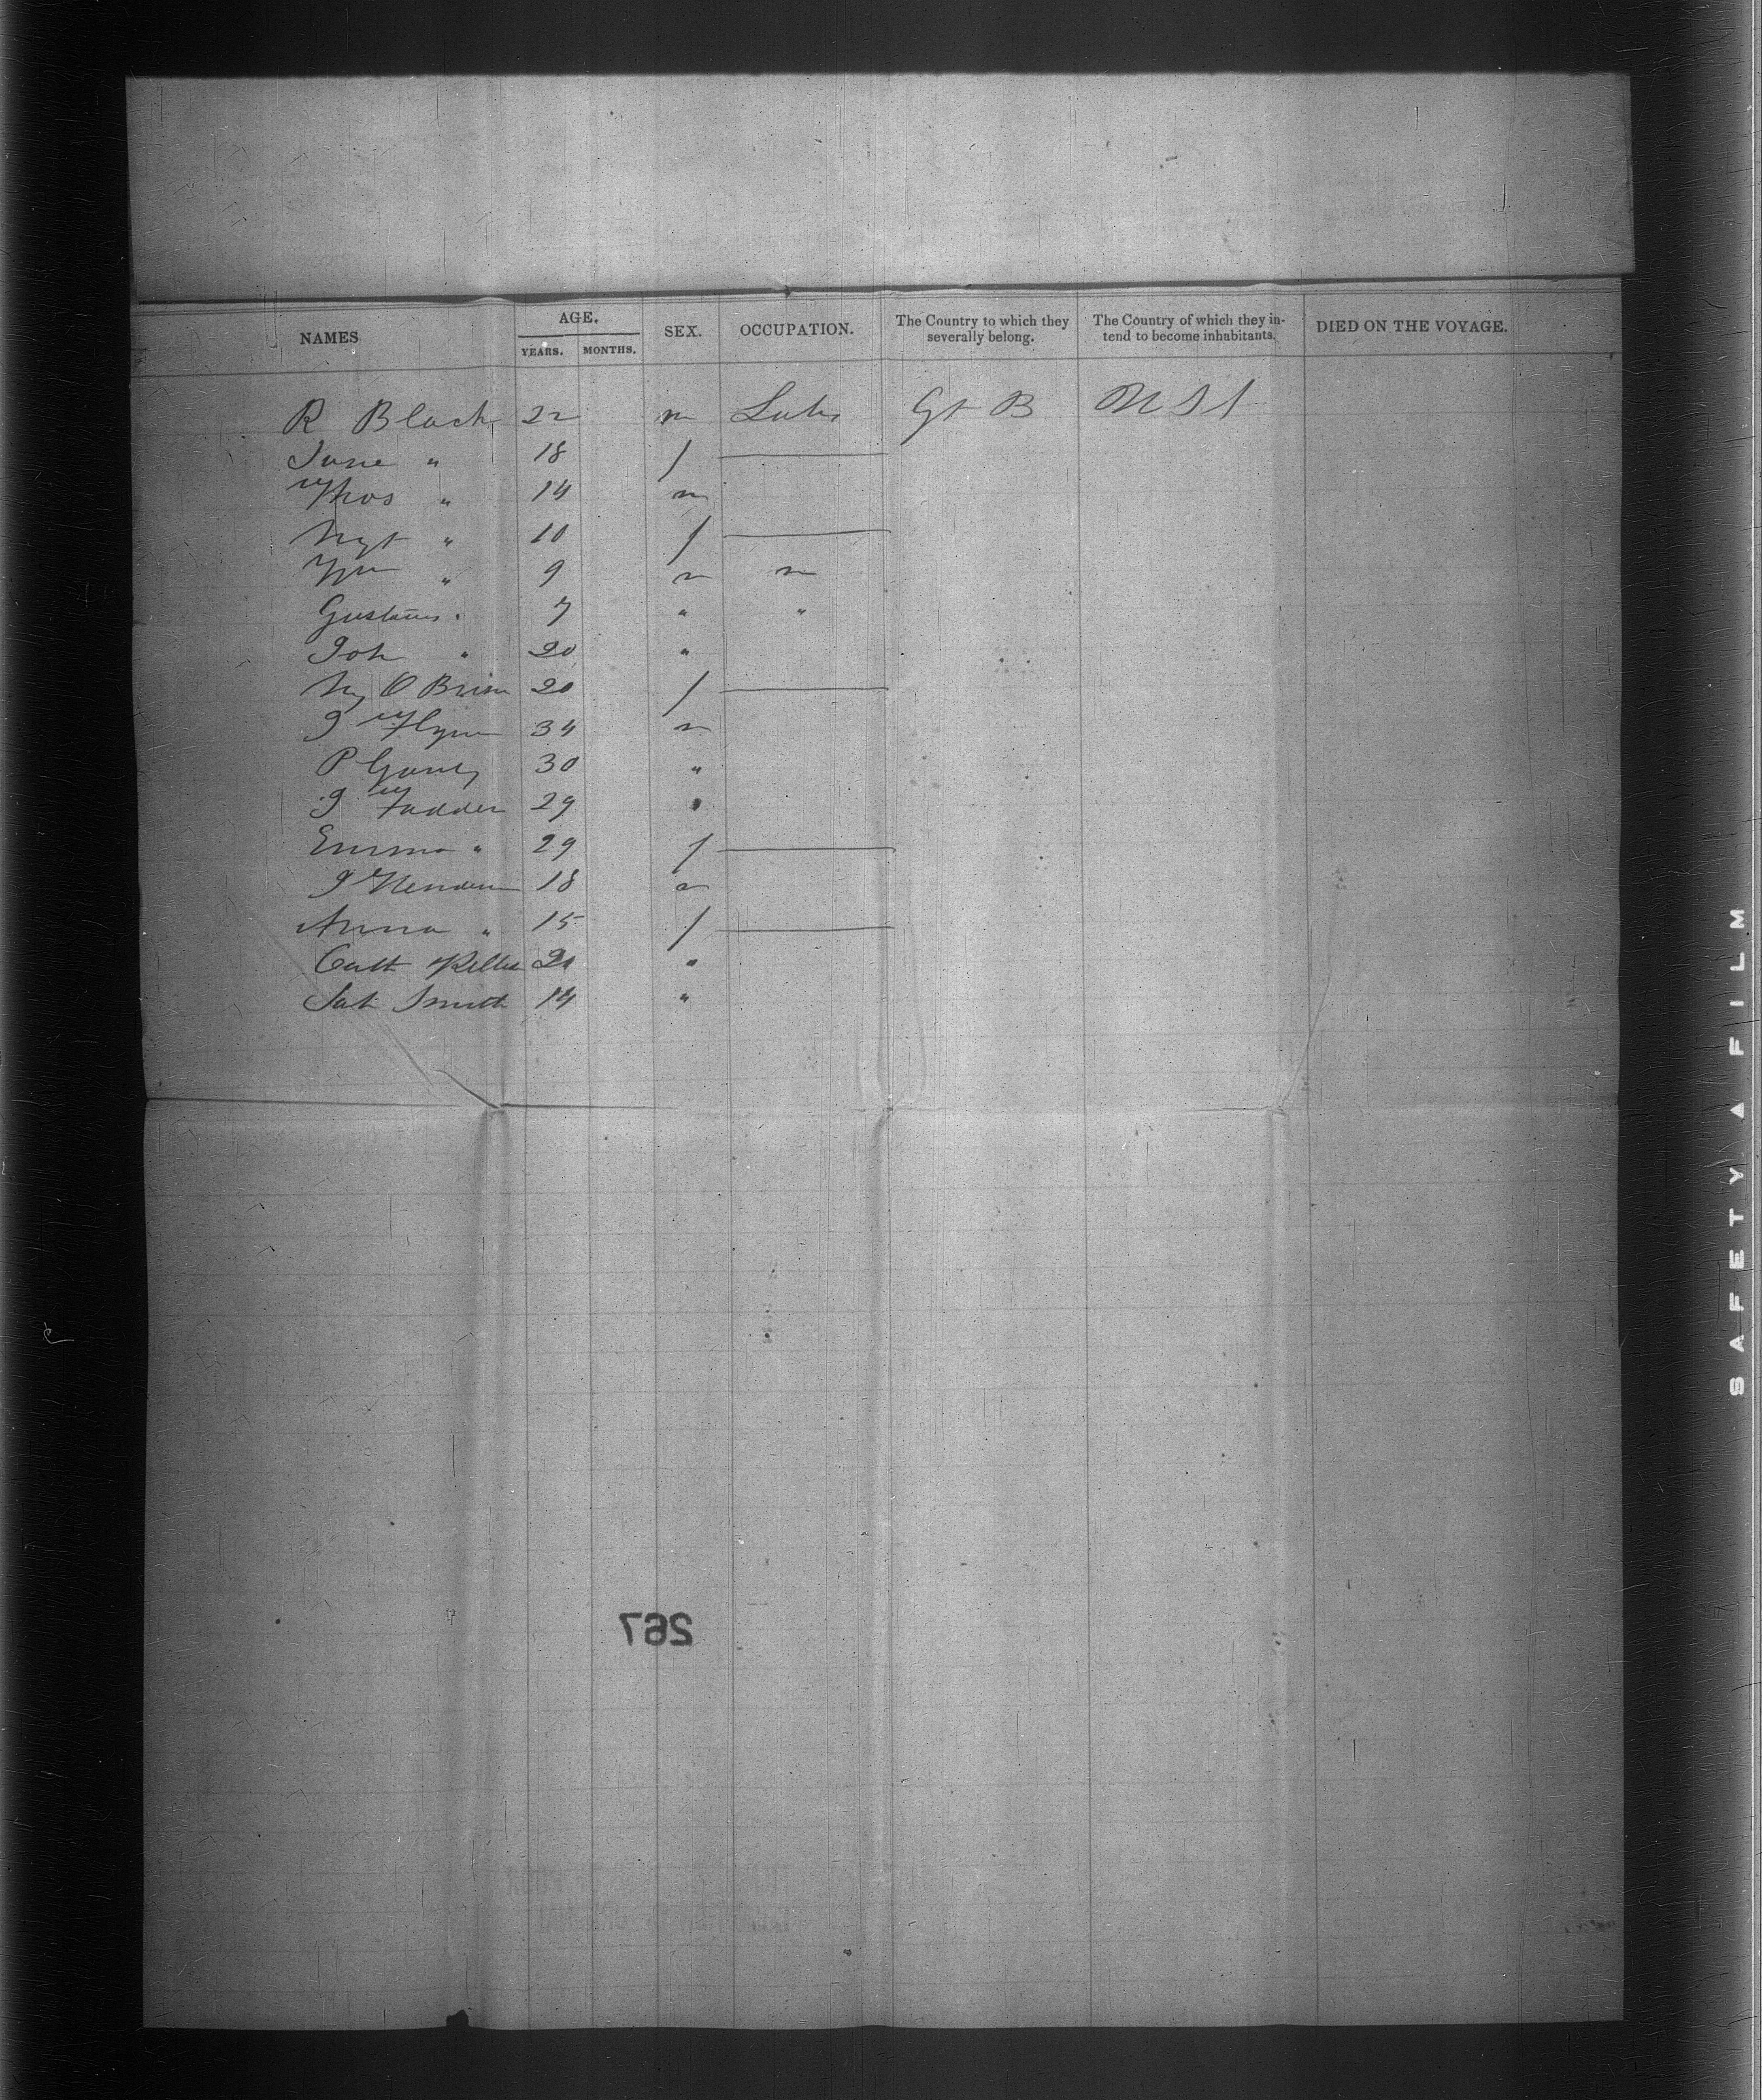 NAMES AGE. YEARS. MONTHS. SEX. OCCUPATION. The Country to which they severally belong. The Country of which they intend to become inhabitants. DIED ON THE VOYAGE.
R Black 22 m Gt B U St
Jane " 18 f
Thos " 14 m
Mgt " 10 f
Wm " 9 m
Gustavus " 7 " "
Joh " 20 "
My O Brien 20 f
J Flynn 34 m
P 30 "
J Fadden 29 "
Emma " 29 f
J 18 m
Anna " 15 f
Cath "
Smith 14 "
267
SAFETY FILM